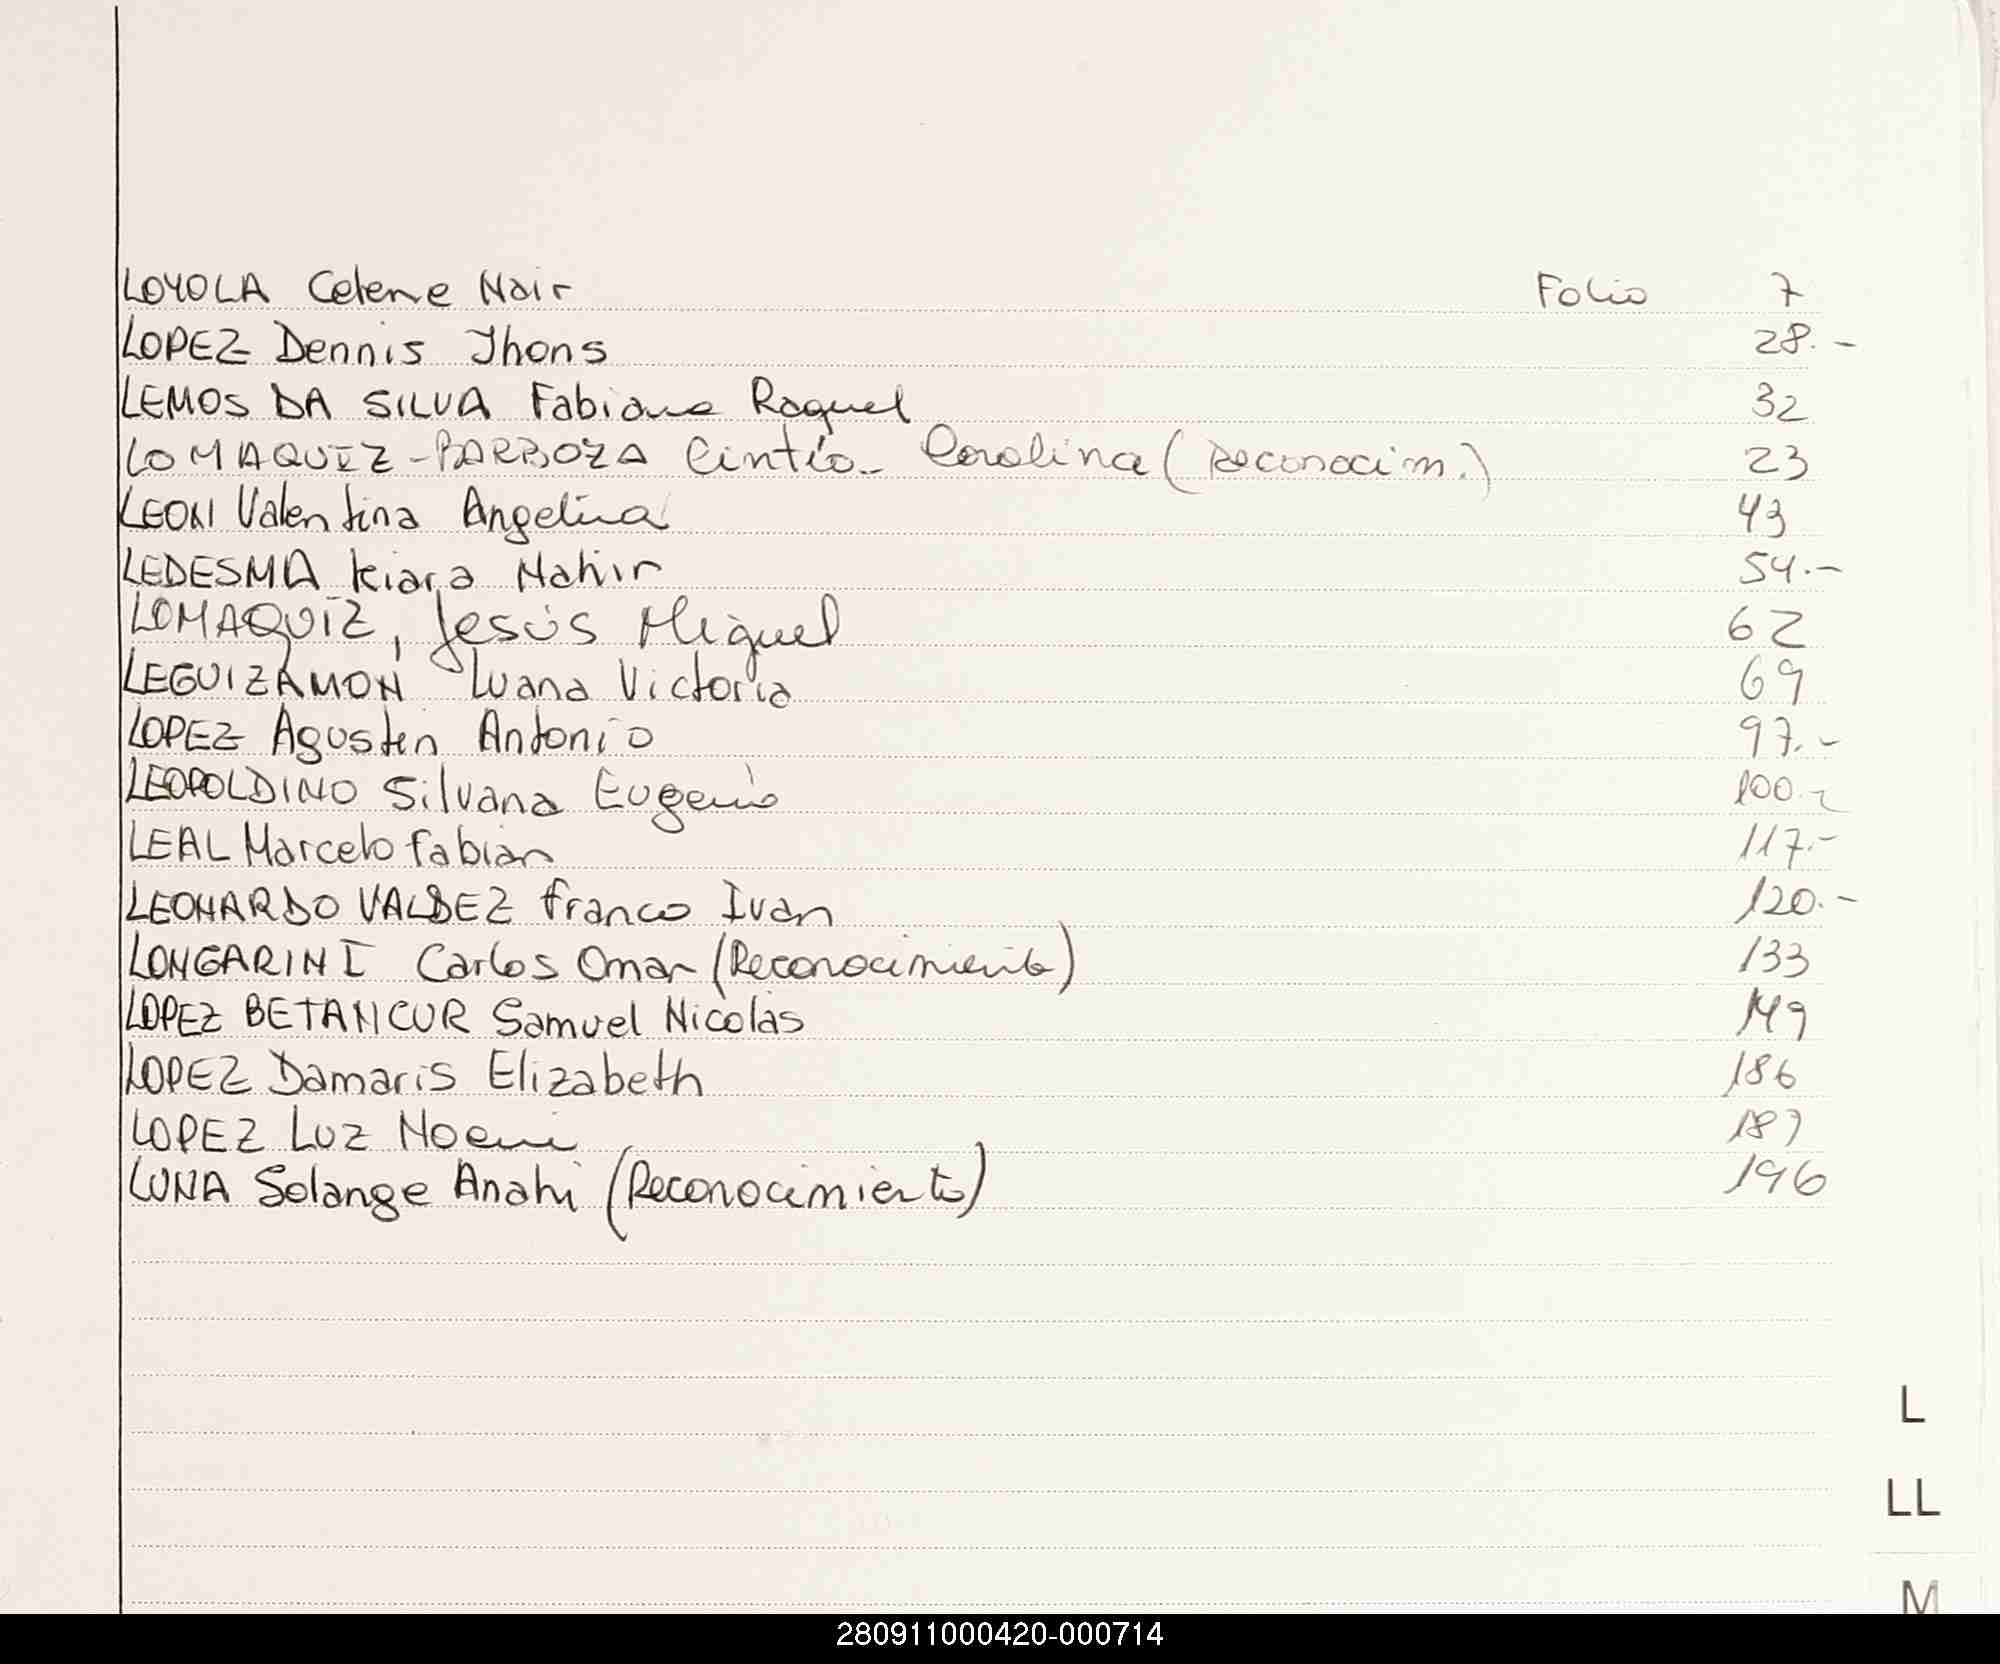 LOYOLA Celene Nair Folio 7
LOPEZ Dennis Jhons 28.-
LEMOS DA SILVA Fabiana Raquel 32
LOMAQUIZ-BARBOZA Cintia Carolina (Reconocim.) 23
LEONI Valentina Angelina 43
LEDESMA Kiara Nahir 54.-
LOMAQUIZ, Jesús Miguel 62
LEGUIZAMON Luana Victoria 69
LOPEZ Agustin Antonio 97.-
LEOPOLDINO Silvana Eugenia 100.-
LEAL Marcelo Fabian 117.-
LEONARDO VALDEZ Franco Ivan 120.-
LONGARINI Carlos Omar (Reconocimiento) 133
LOPEZ BETANCUR Samuel Nicolas 149
LOPEZ Damaris Elizabeth 186
LOPEZ Luz Noemi 187
LUNA Solange Anahi (Reconocimiento) 196
L
LL
M
280911000420-000714